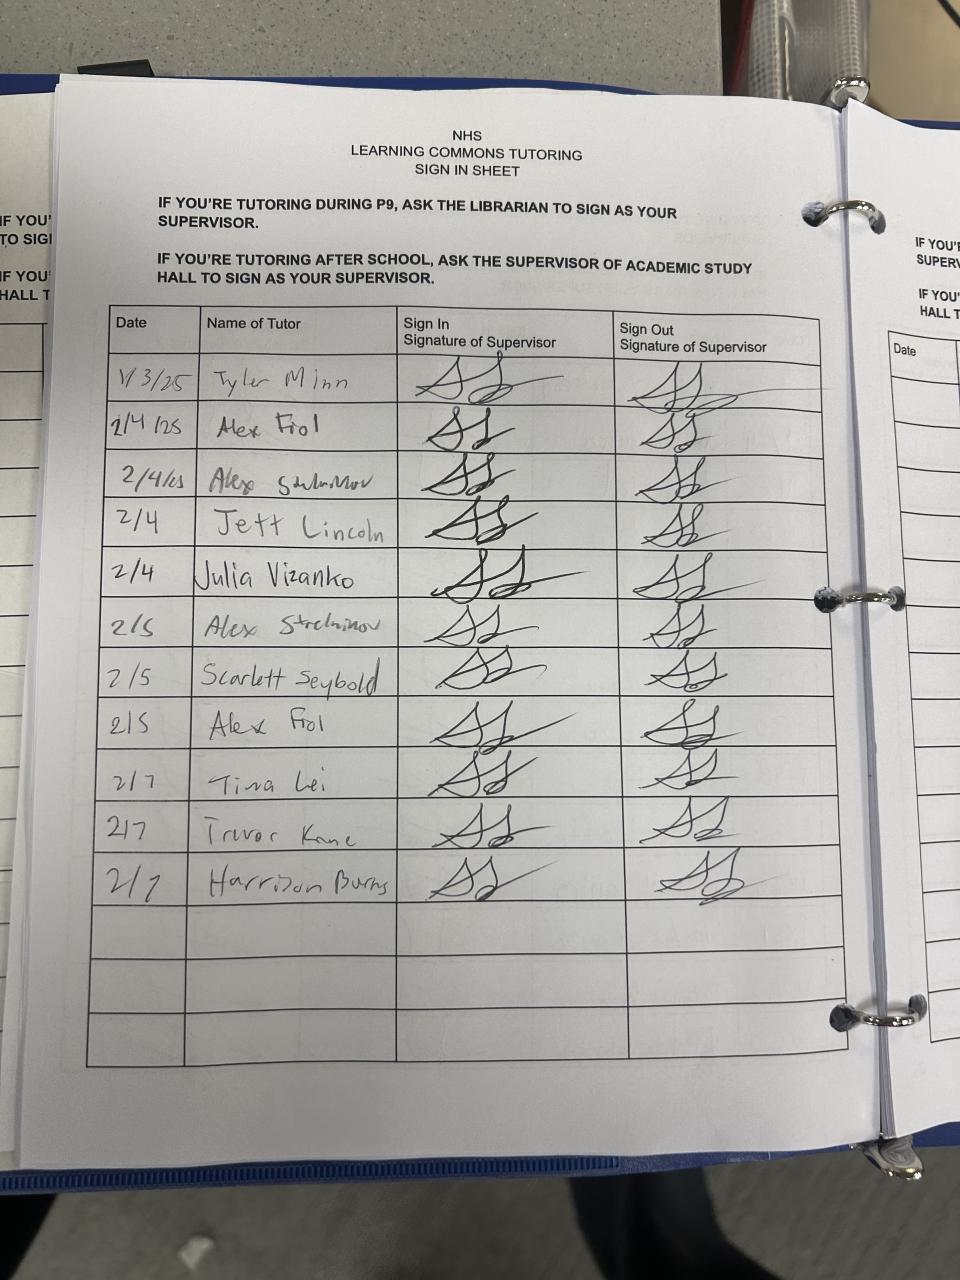 NHS
LEARNING COMMONS TUTORING
SIGN IN SHEET
IF YOU'RE TUTORING DURING P9, ASK THE LIBRARIAN TO SIGN AS YOUR
SUPERVISOR.
IF YOU'RE TUTORING AFTER SCHOOL, ASK THE SUPERVISOR OF ACADEMIC STUDY
HALL TO SIGN AS YOUR SUPERVISOR.
Date Name of Tutor Sign In Signature of Supervisor Sign Out Signature of Supervisor
3/25 Tyler Minn
2/4/25 Alex Frol
2/4/25 Alex
2/4 Jett Lincoln
2/4 Julia Vizanko
2/5 Alex Strelnikov
2/5 Scarlett Seybold
2/5 Alex Frol
2/7 Tina Lei
2/7 Trevor Kane
2/7 Harrison Burns
IF YOU'
TO SIG
IF YOU'
HALL T
IF YOU'
SUPERV
IF YOU'
HALL T
Date